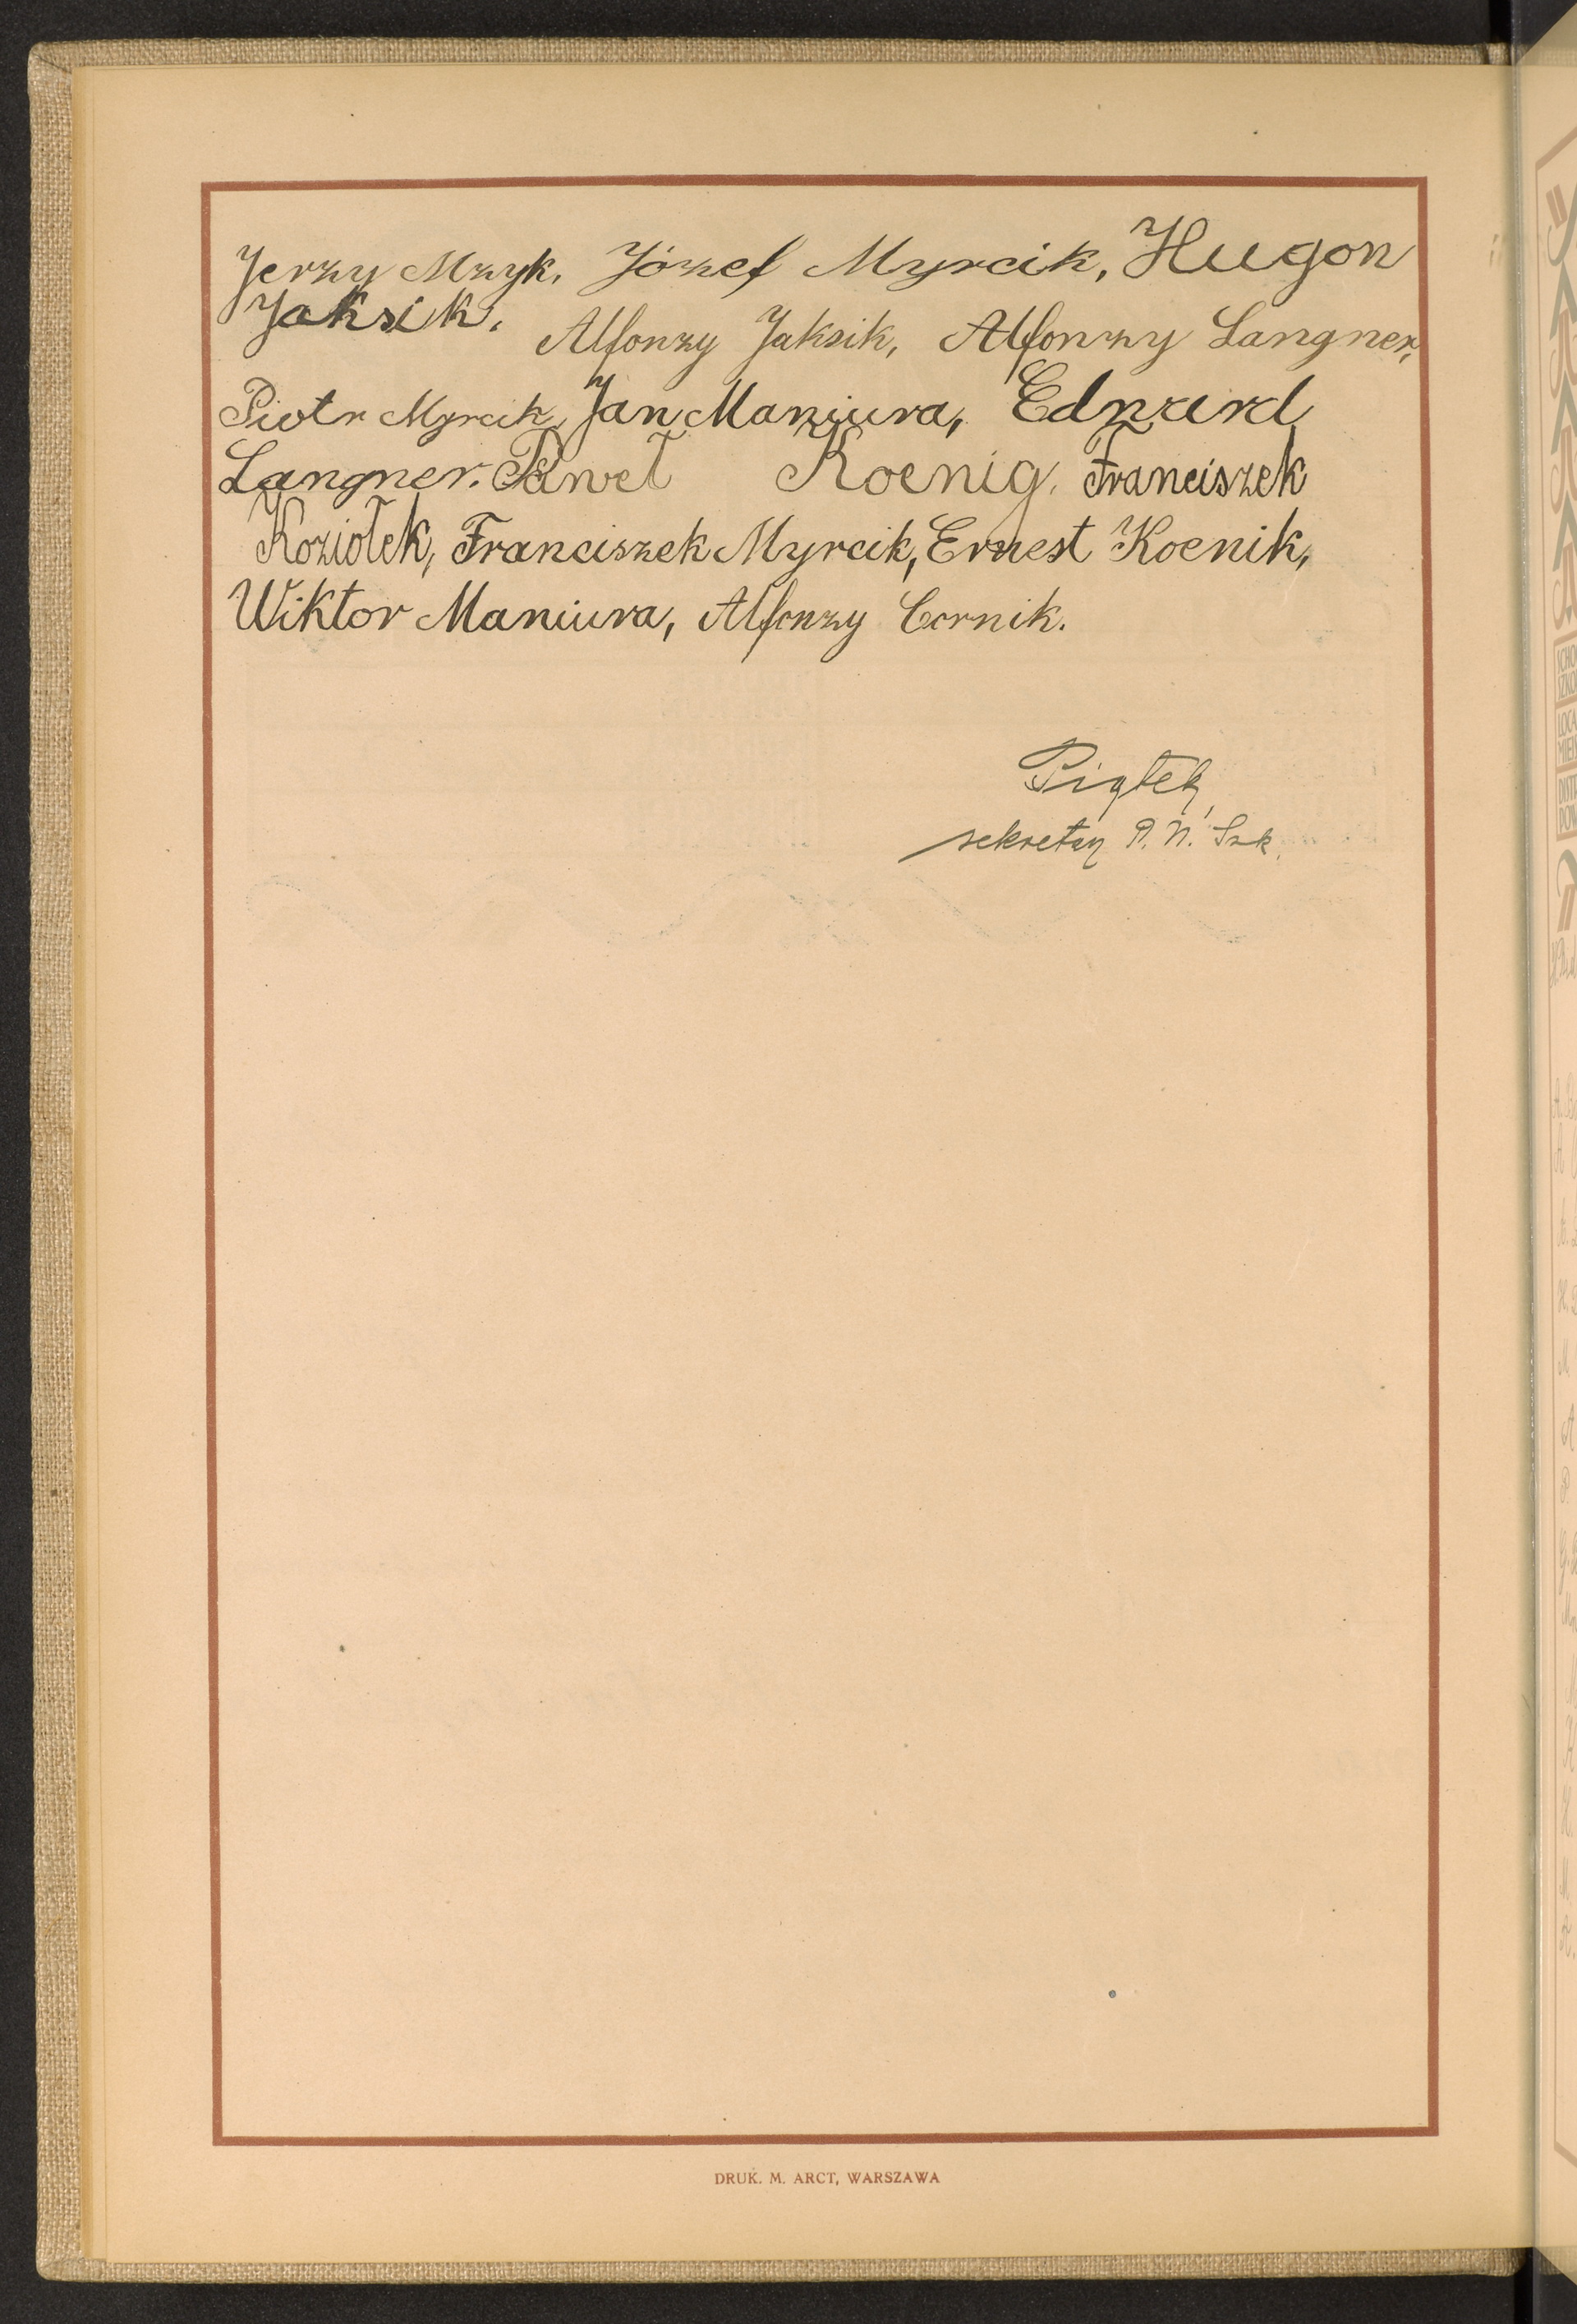 Jerzy Mzyk. Józef Myrcik, Hugon
Jaksik. Alfonzy Jaksik, Alfonzy Langner,
Piotr Myrcik, Jan Maniura, Edward
Langner. Paweł Koenig. Franciszek
Koziołek, Franciszek Myrcik, Ernest Koenik,
Wiktor Maniura, Alfonzy Cornik.
Piątek,
sekretarz P. N. Szk.
DRUK. M. ARCT, WARSZAWA